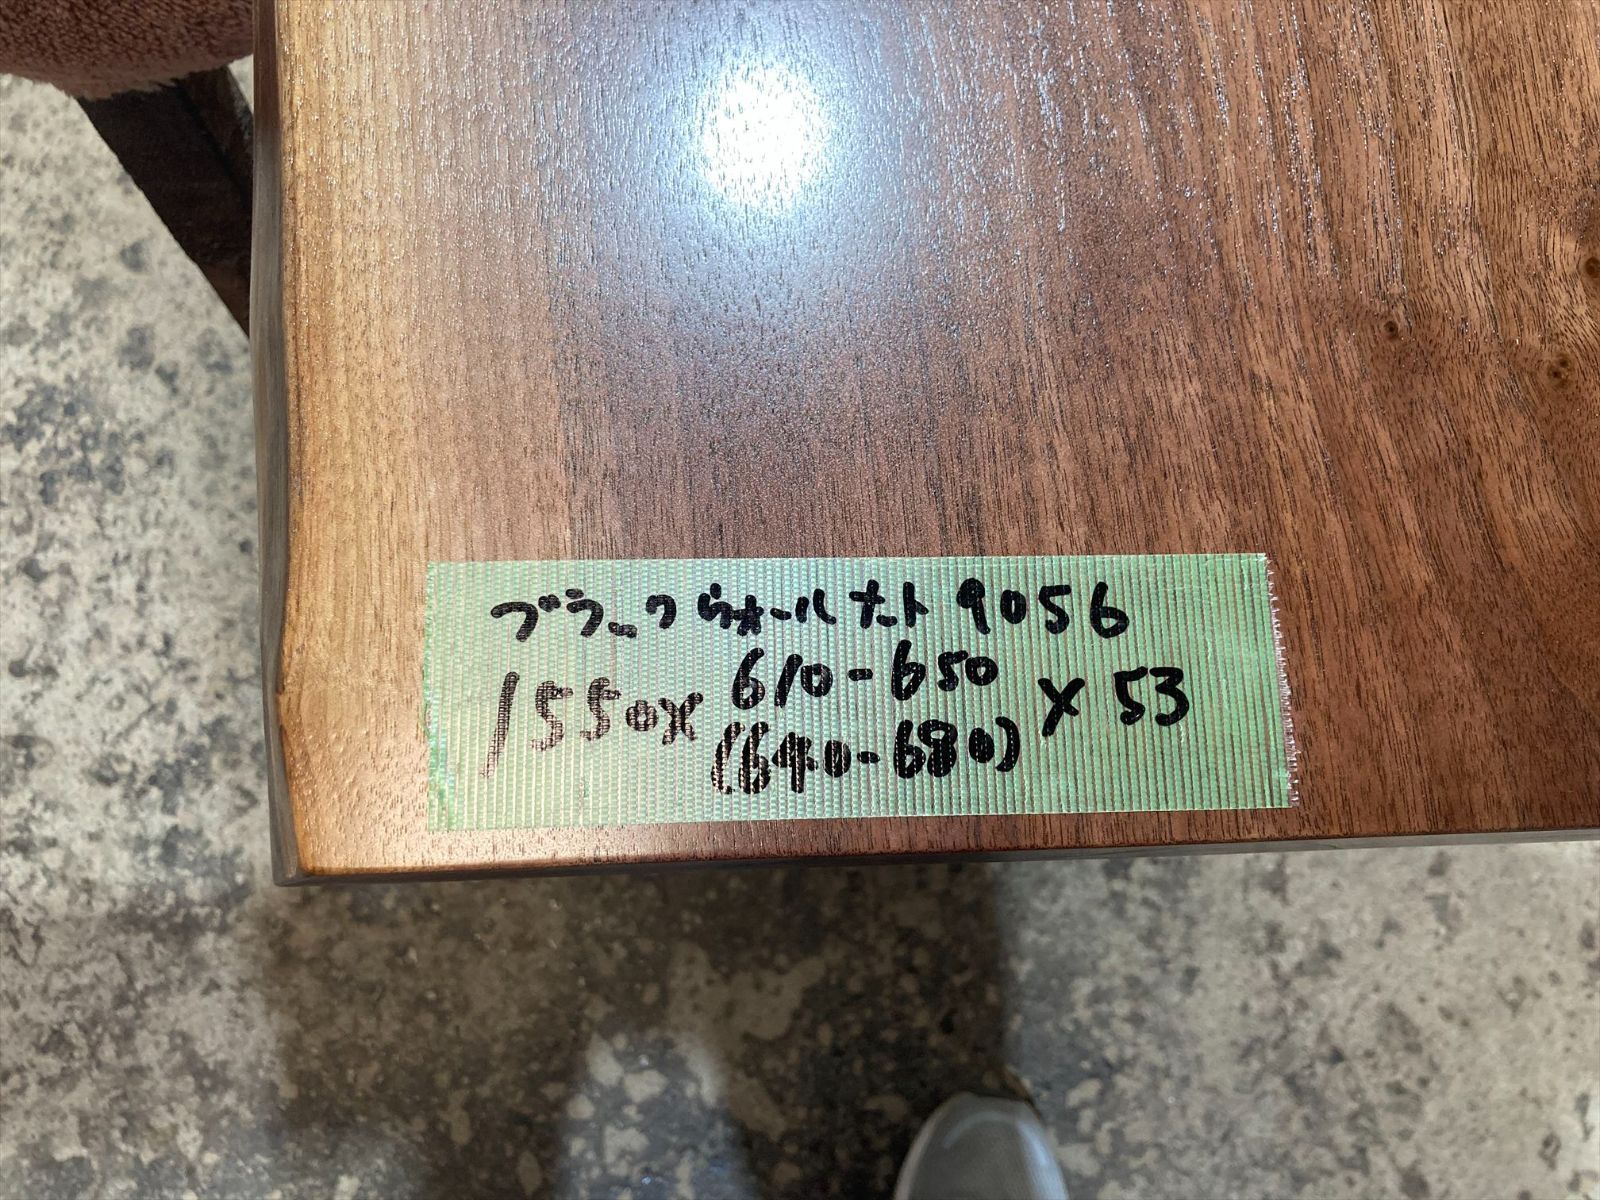 ブラックウォールナット9056
1550×610-650×53
(640-680)